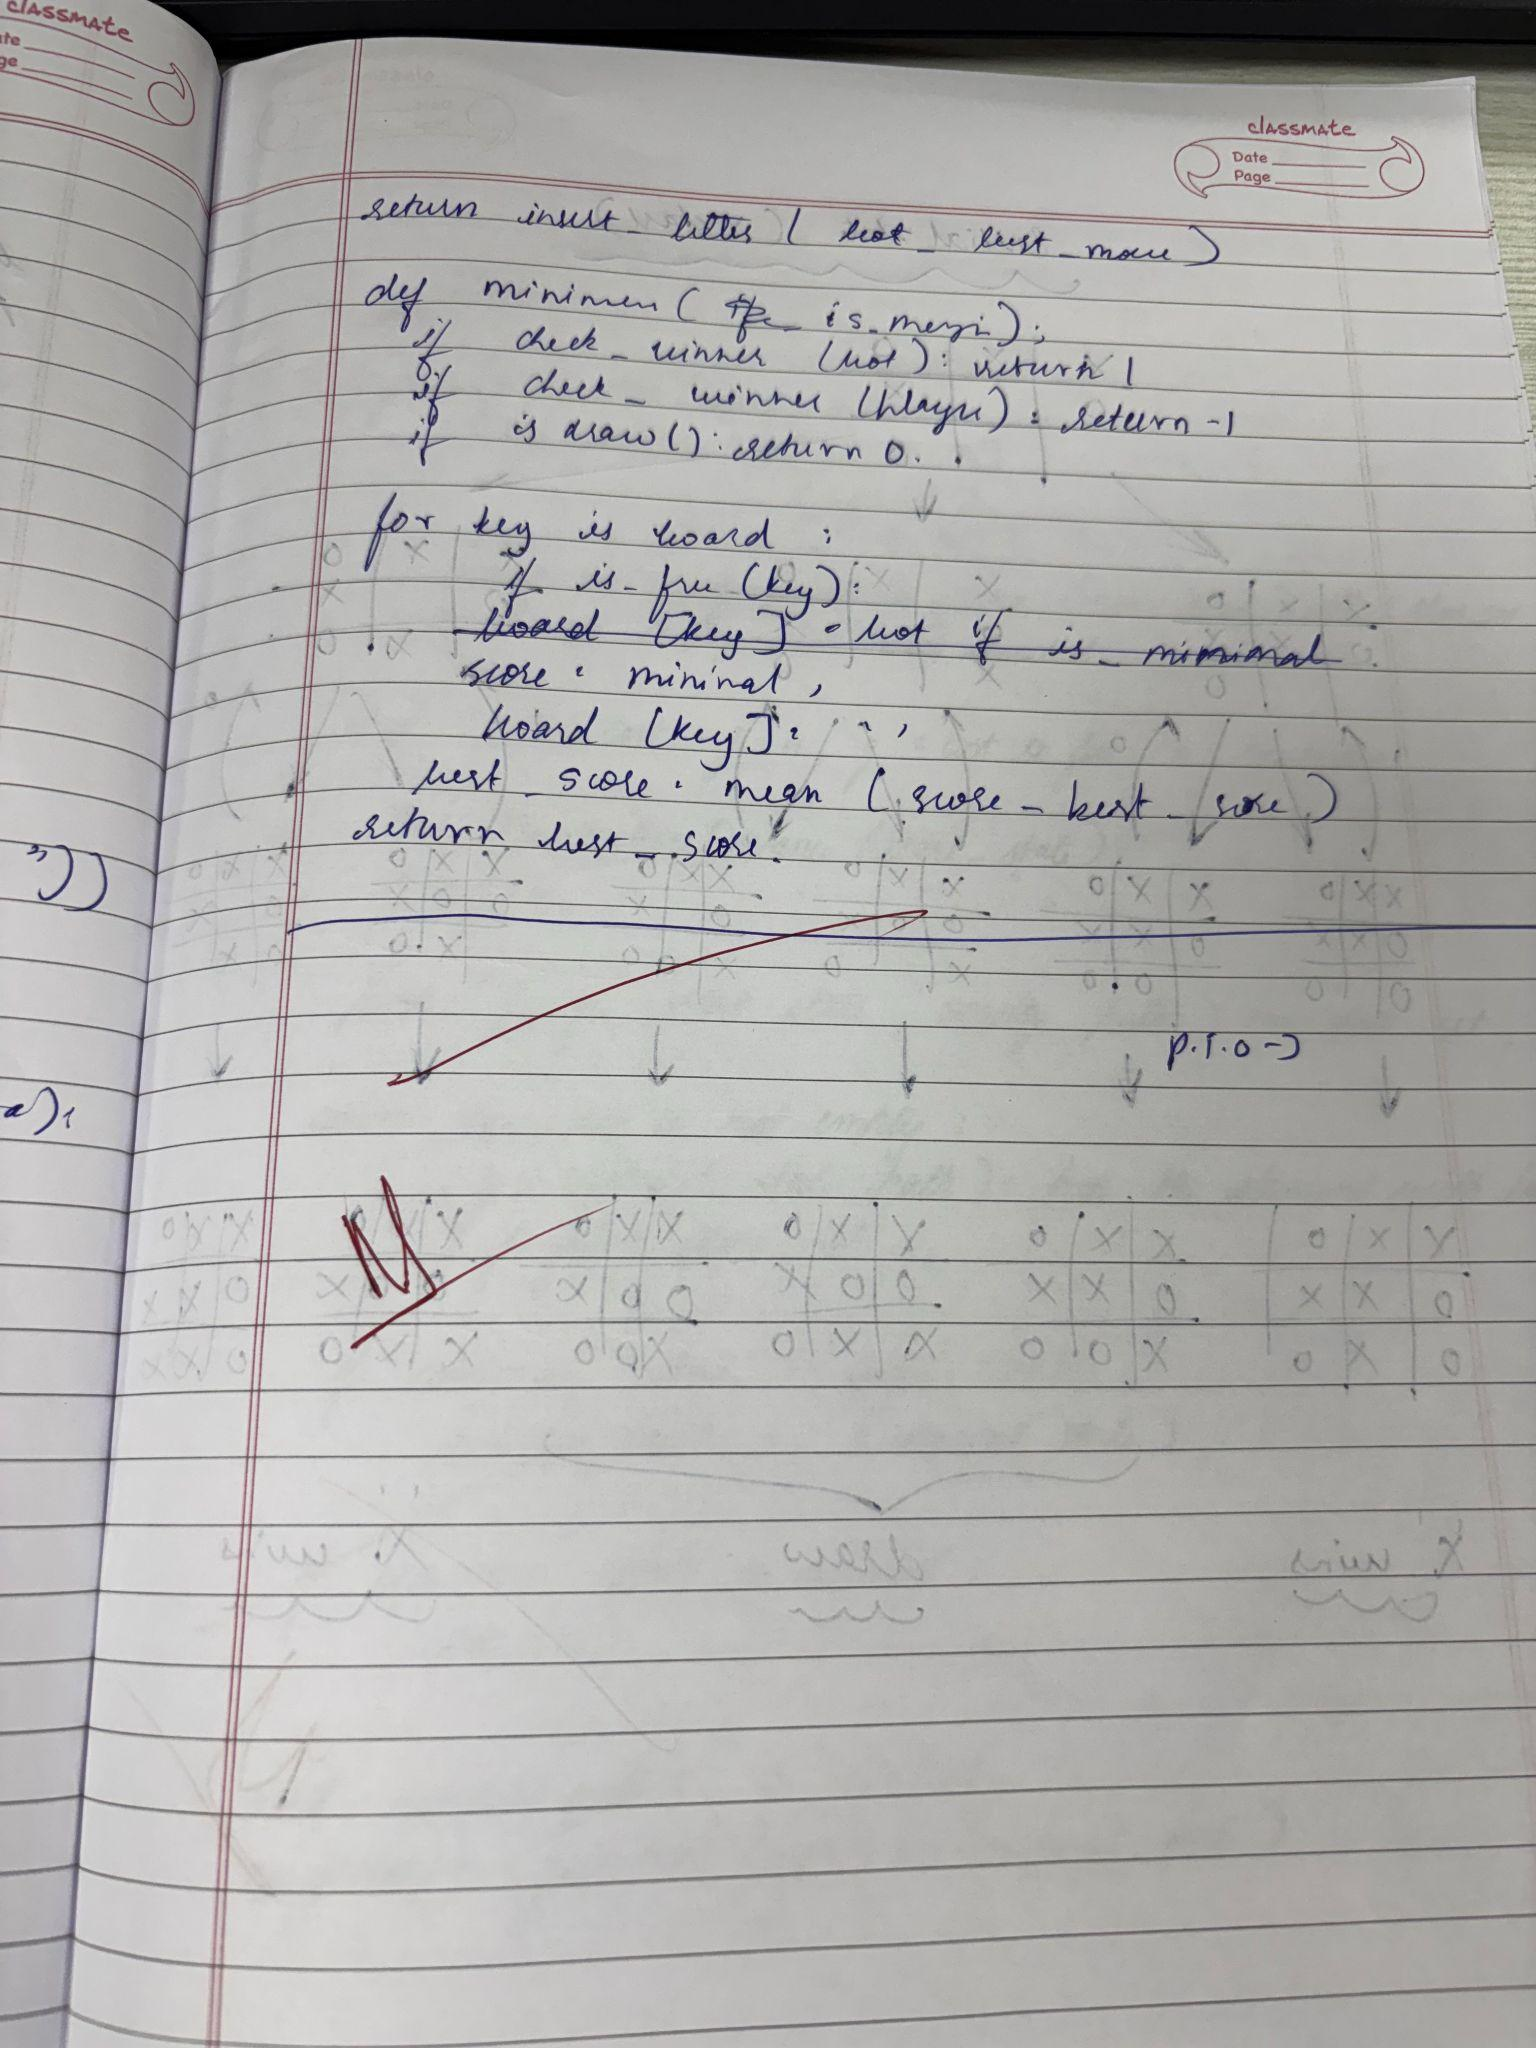 classmate
Date
Page
return insert_letter ( bot_ best_move )
def minimax ( is_maxi):
if check_winner (bot): return 1
if check_winner (player): return -1
if is draw(): return 0.
for key is board :
if is_free (key):
board [key] = bot if is_minimal
score = minimal,
board [key] = ' '
best_score = mean (score - best_score)
return best_score.
P.T.O →